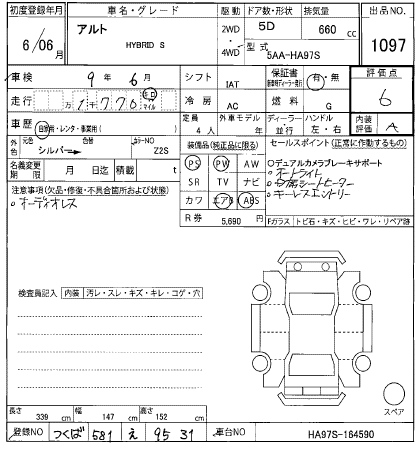 初度登録年月 車名・グレード 駆動 ドア数・形状 排気量 出品NO.
6/06月 アルト HYBRID S 2WD・4WD 5D 660 cc 1097
型式 5AA-HA97S
車検 9年 6月 シフト IAT 保証書 有・無 評価点
走行 万 1千770 キロ マイル 冷房 AC 燃料 G 6
車歴 自家用・レンタ・事業用( ) 定員 4人 外車モデル 年 ディーラー 並行 ハンドル 左・右 内装評価 A
外色 元色 シルバー 色替 カラーNO Z2S 装備品(純正品に限る) セールスポイント(正常に作動するもの)
名義変更期限 月 日迄 積載 t PS PW AW デュアルカメラブレーキサポート
注意事項(欠品・修復・不具合箇所および状態) SR TV ナビ オートライト
オーディオレス カワ エアB ABS シートヒーター
キーレスエントリー
R券 5,690円 Fガラス トビ石・キズ・ヒビ・ワレ・リペア跡
検査員記入 内装 汚レ・スレ・キズ・キレ・コゲ・穴
スペア
長さ 339 cm 幅 147 cm 高さ 152 cm
登録NO つくば 581 え 95 31 車台NO HA97S-164590